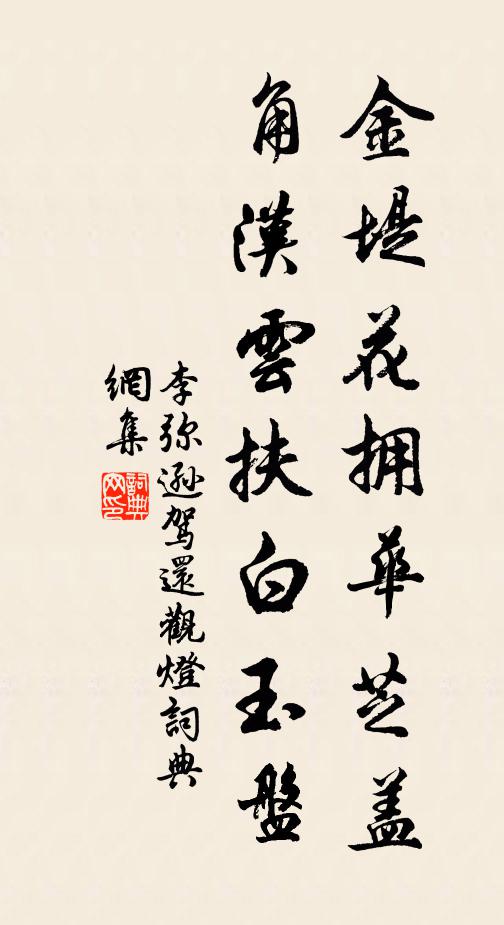 金堤花拥華芝盖
角漢雲扶白玉盤
李弥遜駕還觀燈詞典
網集
詞典
网印